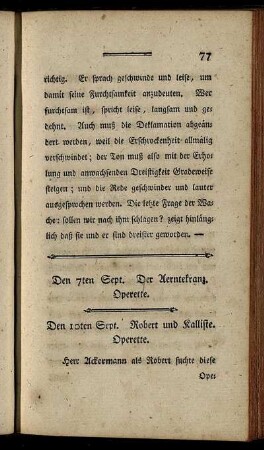 77
richtig. Er sprach geschwinde und leise, um
damit seine Furchtsamkeit anzudeuten. Wer
furchtsam ist, spricht leise, langsam und ge⸗
dehnt. Auch muß die Deklamation abgeän⸗
dert werden, weil die Erschrockenheit allmälig
verschwindet; der Ton muß also mit der Erho⸗
lung und anwachsenden Dreistigkeit Gradeweise
steigen; und die Rede geschwinder und lauter
ausgesprochen werden. Die letzte Frage der Wa⸗
che: sollen wir nach ihm schlagen? zeigt hinläng⸗
lich daß sie und er sind dreister geworden. —
Den 7ten Sept. Der Aerntekranz.
Operette.
Den 10ten Sept. Robert und Kalliste.
Operette.
Herr Ackermann als Robert suchte diese
Ope⸗